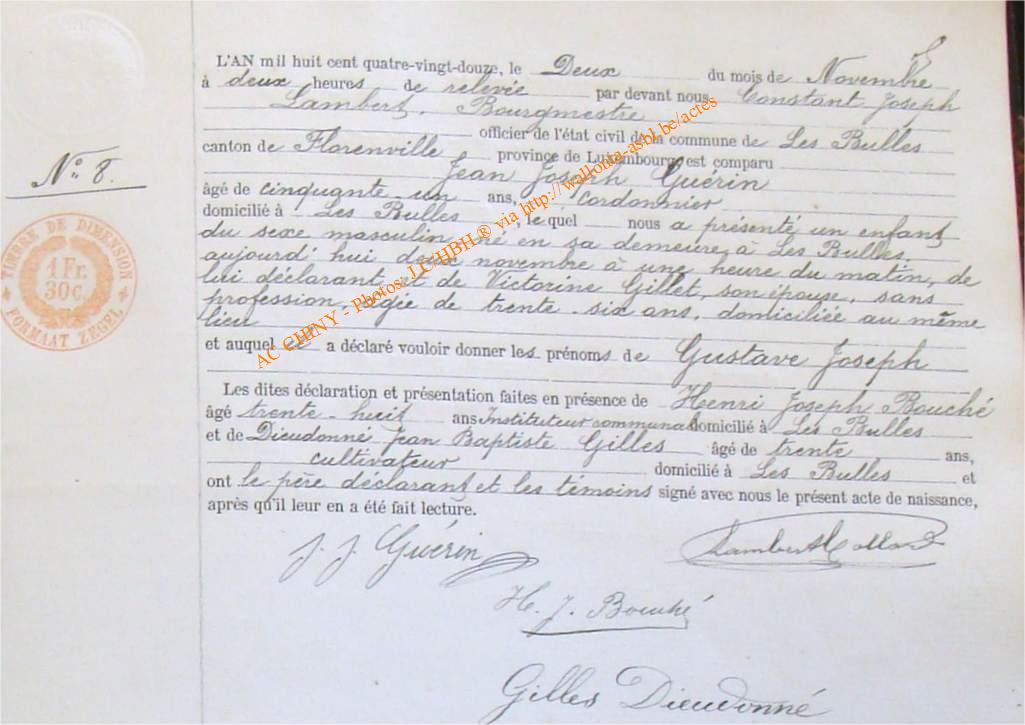 L'AN mil huit cent quatre-vingt-douze, le Deux du mois de Novembre
à deux heures de relevée par devant nous Constant Joseph
Lambert, Bourgmestre
officier de l'état civil de la commune de Les Bulles
canton de Florenville province de Luxembourg est comparu
Jean Joseph Guérin
âgé de cinquante-un ans, cordonnier
domicilié à Les Bulles, lequel nous a présenté un enfant
du sexe masculin né en sa demeure à Les Bulles,
aujourd'hui deux novembre à une heure du matin, de
lui déclarant et de Victorine Gillet, son épouse, sans
profession, âgée de trente-six ans, domiciliée au même
lieu
et auquel il a déclaré vouloir donner les prénoms de Gustave Joseph
Les dites déclaration et présentation faites en présence de Henri Joseph Bouché
âgé trente-huit ans Instituteur communal domicilié à Les Bulles
et de Dieudonné Jean Baptiste Gilles âgé de trente ans,
cultivateur domicilié à Les Bulles et
ont le père déclarant et les témoins signé avec nous le présent acte de naissance,
après qu'il leur en a été fait lecture.
No 8.
TIMBRE DE DIMENSION
1 Fr.
30 c.
FORMAAT ZEGEL
AC CHINY - Photos: J.C.HBH.® via http://wallonia-asbl.be/actes
J. J. Guérin
Lambert
H. J. Bouché
Gilles Dieudonné